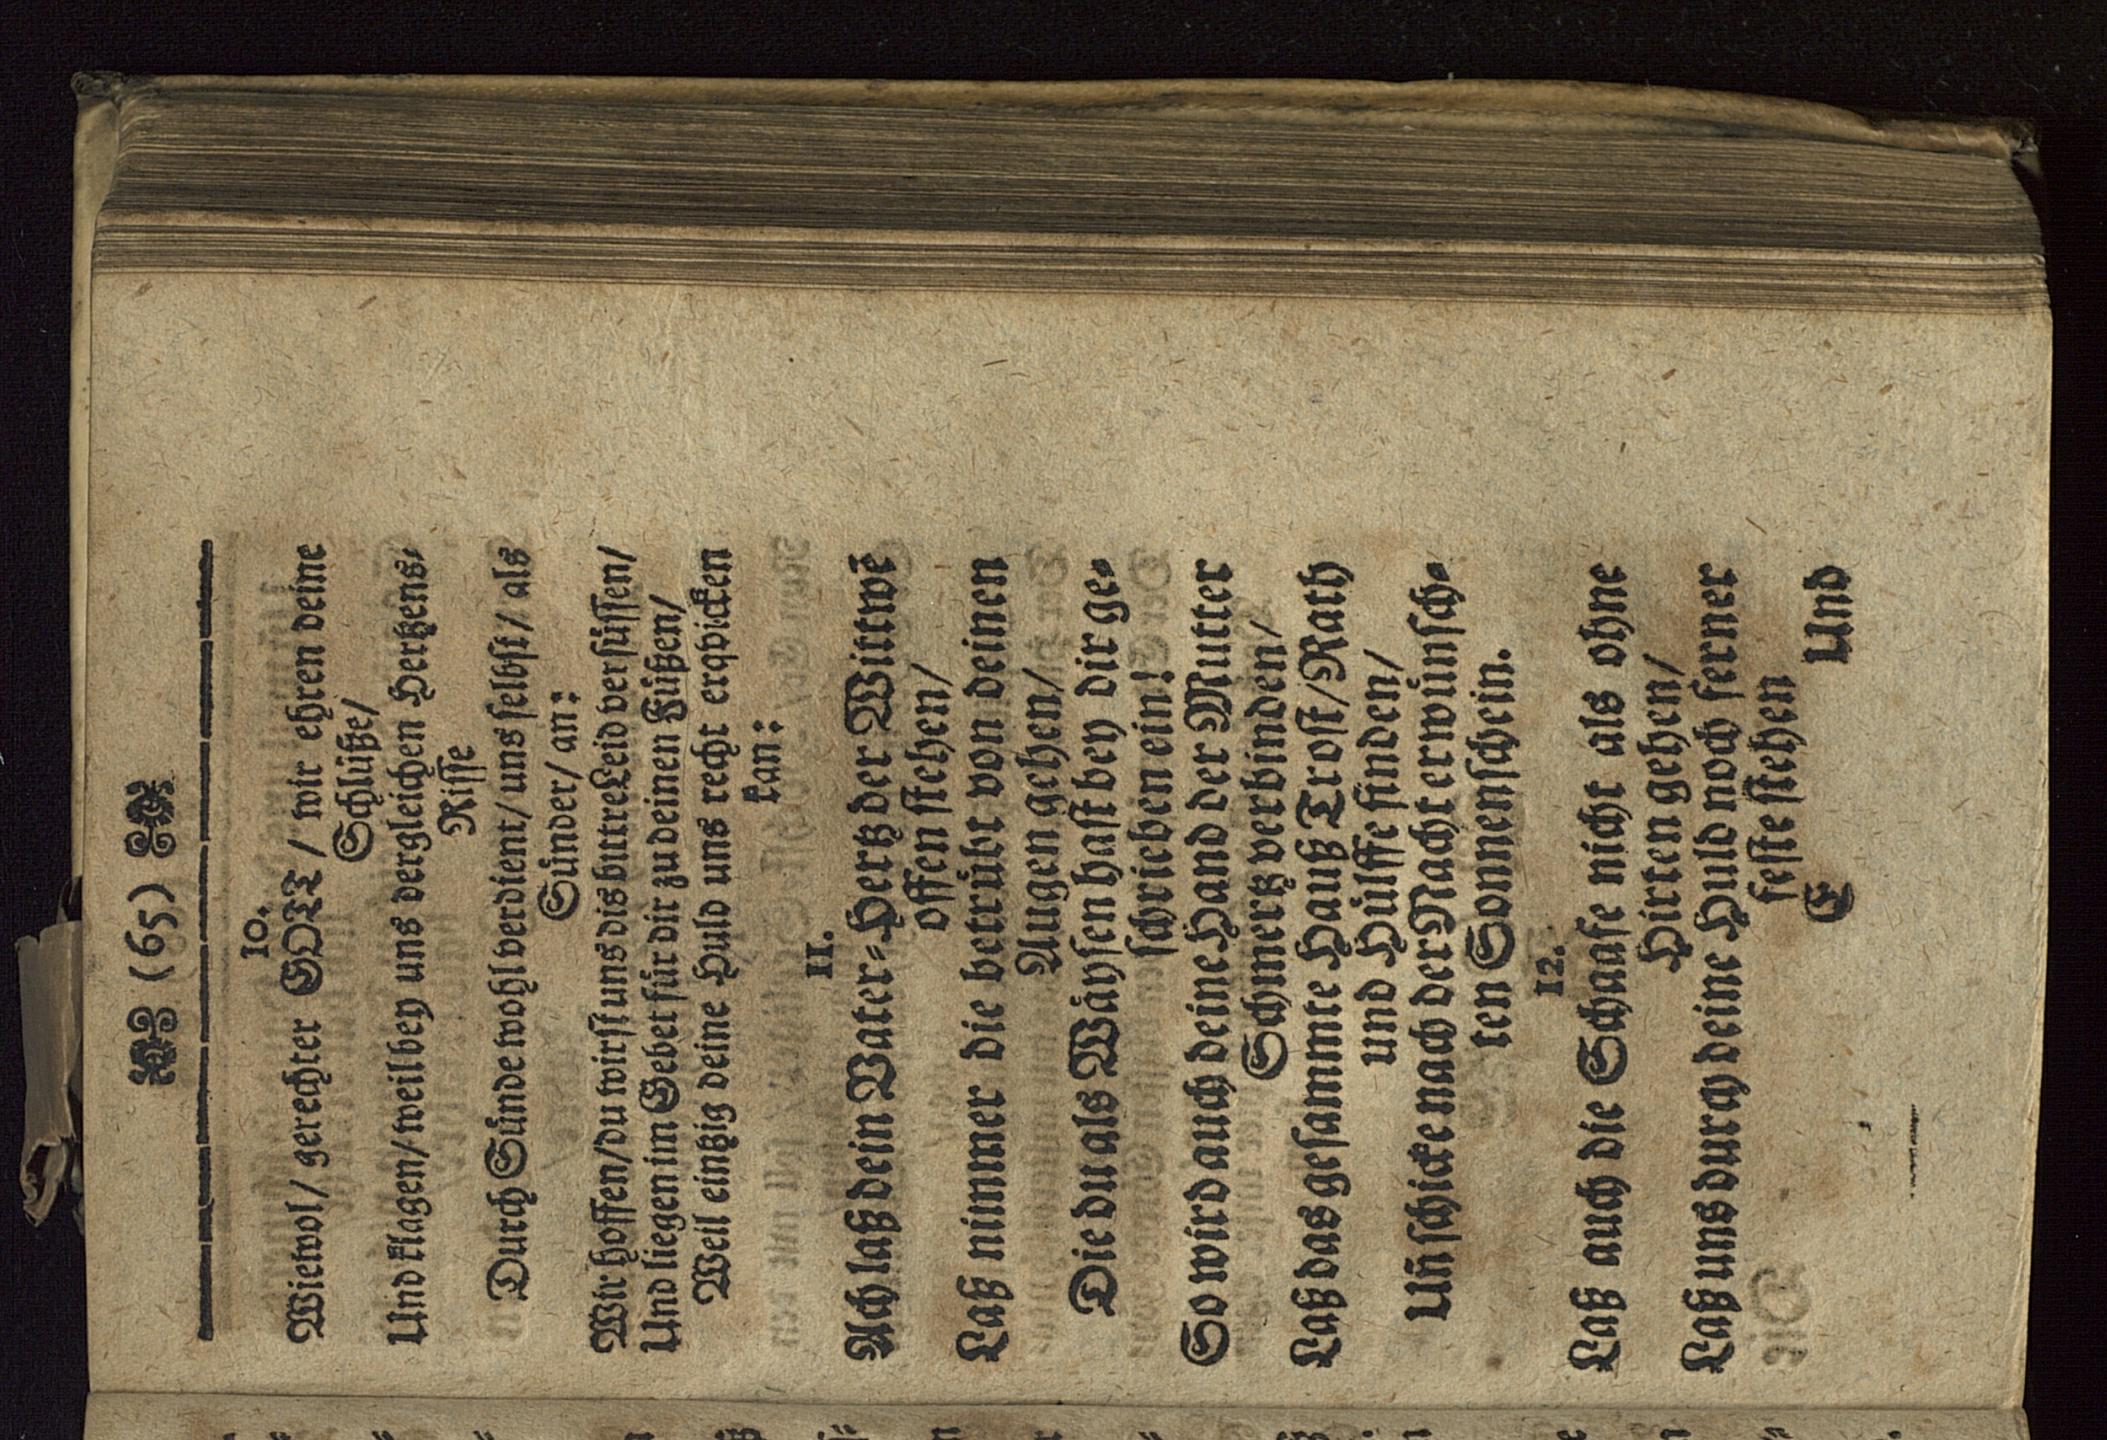 (65)
10.
Wiewol/ gerechter GOTT/ wir ehren deine
Schlüße/
Und klagen/ weil bey uns dergleichen Hertzens-
Risse
Durch Sünde wohl verdient/ uns selbst/ als
Sünder/ an:
Wir hoffen/ du wirst uns dis bittre Leid versüssen/
Und liegen im Gebet für dir zu deinen Füßen/
Weil eintzig deine Huld uns recht erqvicken
kan:
11.
Ach laß dein Vater-Hertz der Wittwe
offen stehen/
Laß nimmer die betrübt von deinen
Augen gehen/
Die du als Wäysen hast bey dir ge-
schrieben ein!
So wird auch deine Hand der Mutter
Schmertz verbinden/
Laß das gesammte Hauß Trost/ Rath
und Hülffe finden/
Uñ schicke nach der Nacht erwünsch-
ten Sonnenschein.
12.
Laß auch die Schaafe nicht als ohne
Hirten gehen/
Laß uns durch deine Huld noch ferner
feste stehen
E Und